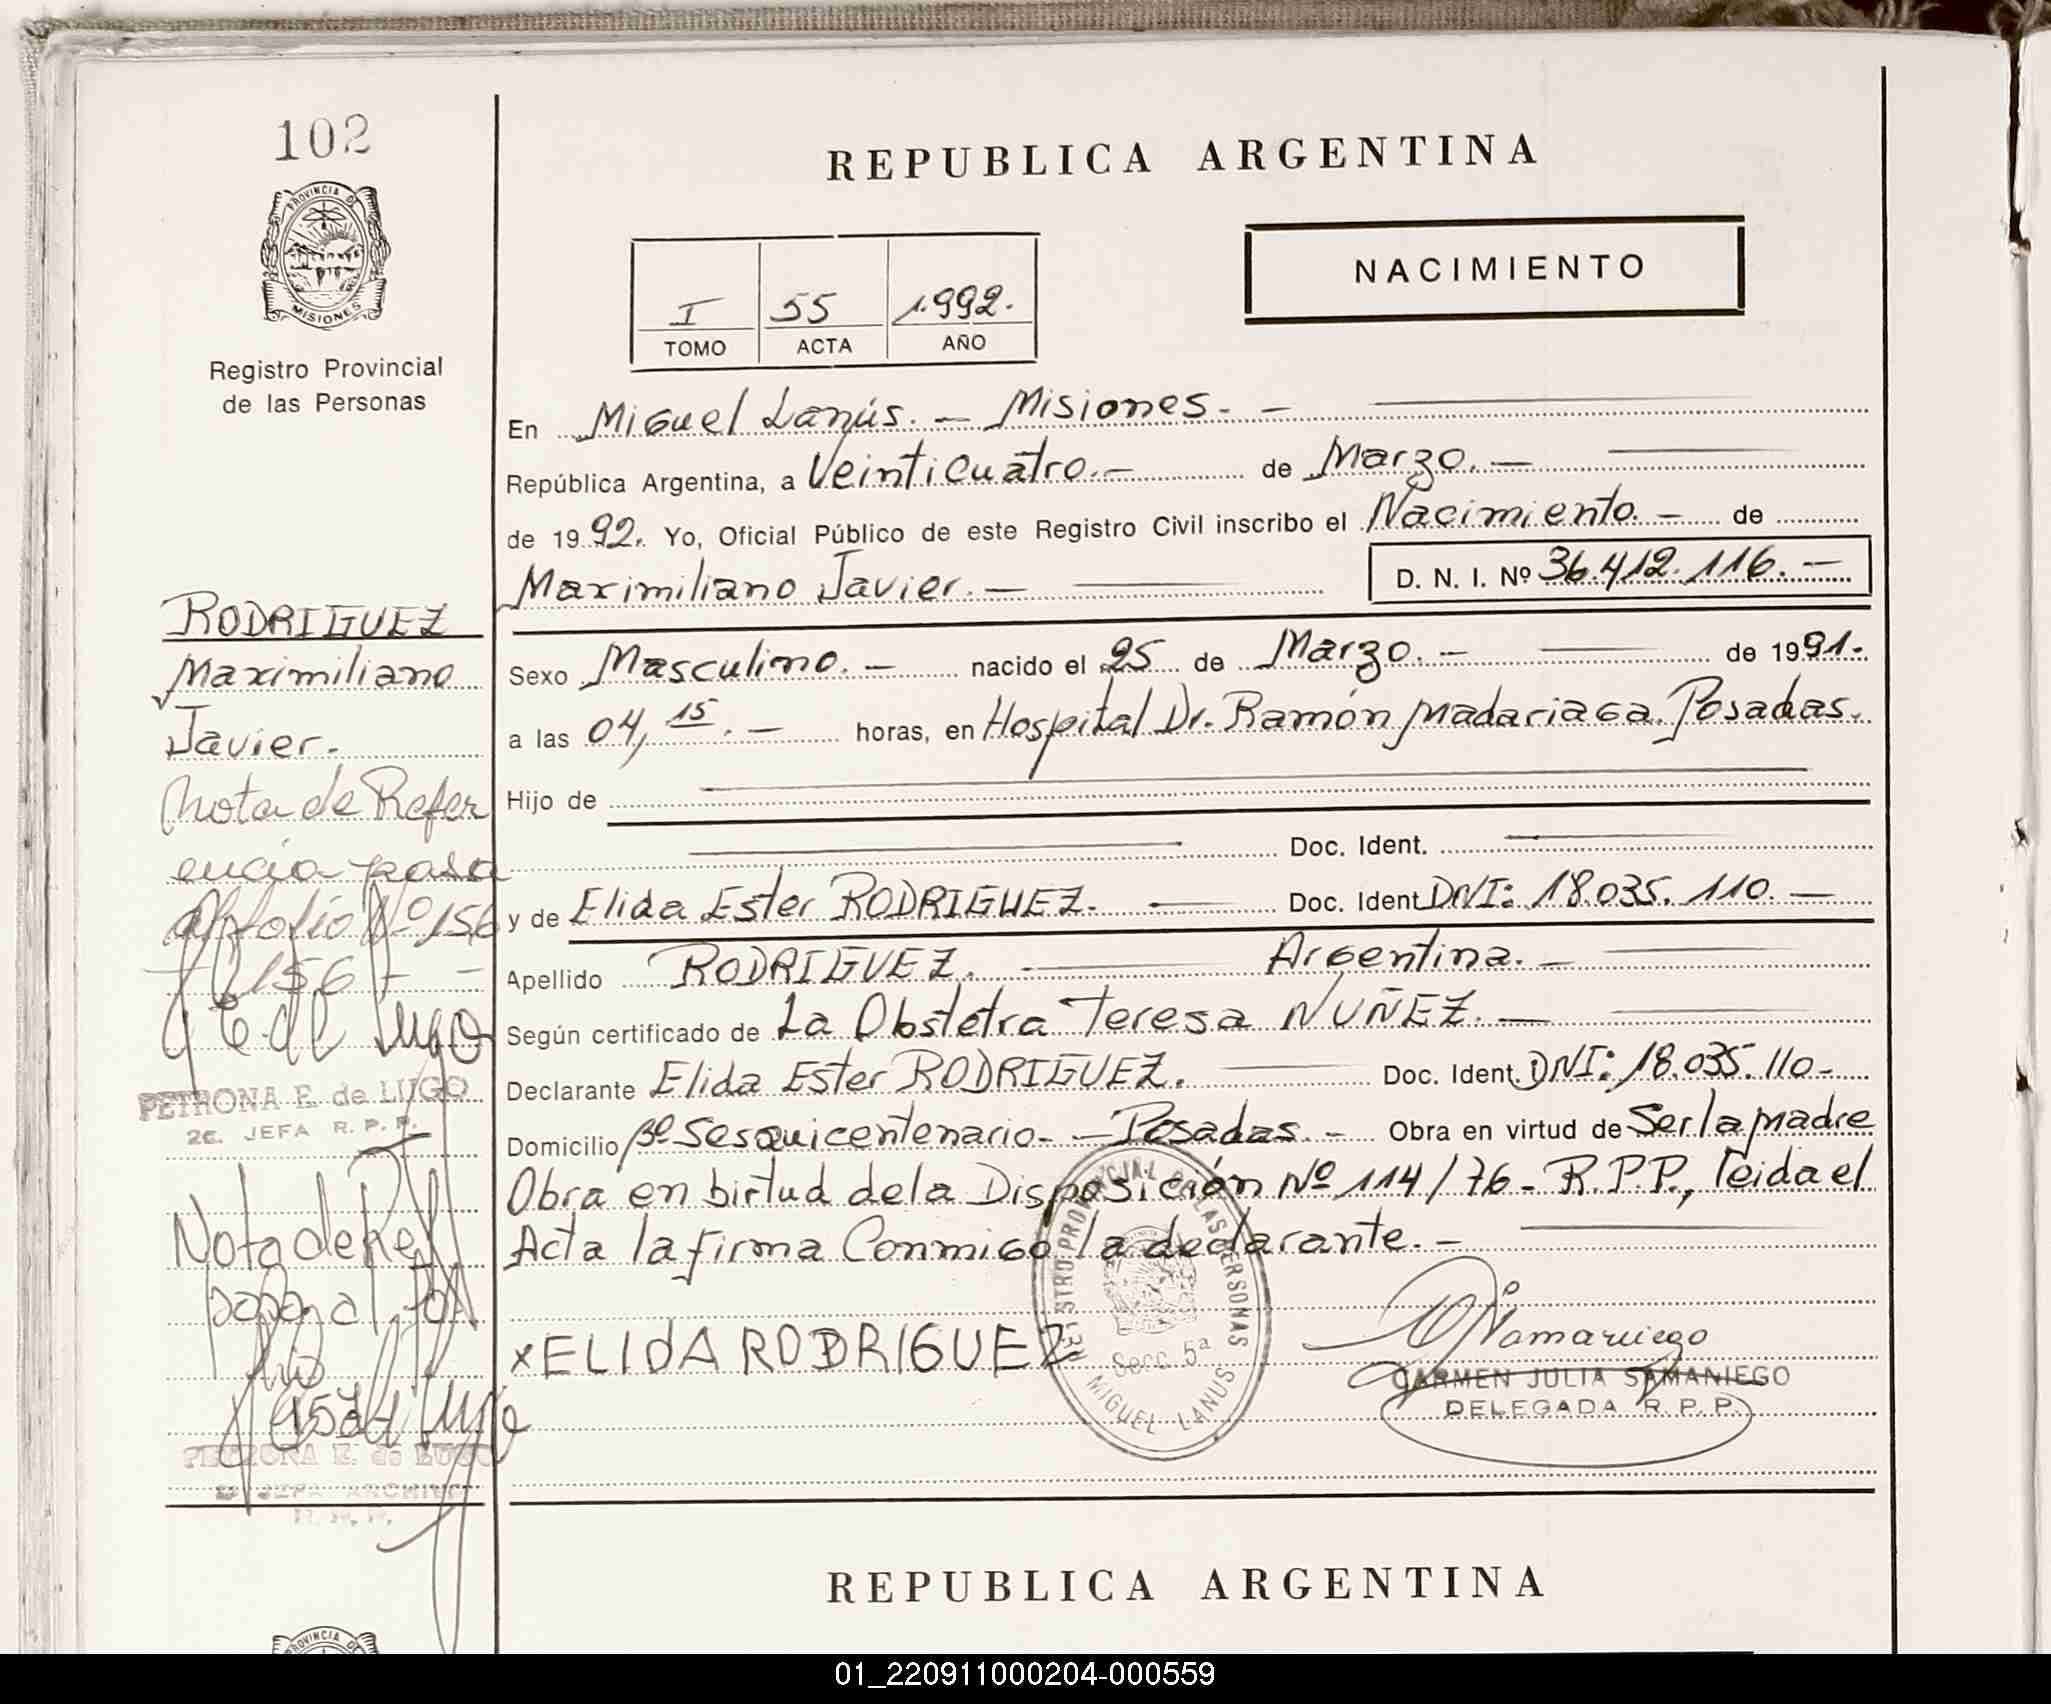 102
REPUBLICA ARGENTINA
PROVINCIA DE
MISIONES
Registro Provincial
de las Personas
I 55 1.992.
TOMO ACTA AÑO
NACIMIENTO
En Miguel Lanús. - Misiones. -
República Argentina, a Veinticuatro. - de Marzo. -
de 1992. Yo, Oficial Público de este Registro Civil inscribo el Nacimiento. - de
Maximiliano Javier. - D. N. I. Nº 36.412.116. -
Sexo Masculino. - nacido el 25 de Marzo. - de 1991.
a las 04,15. - horas, en Hospital Dr. Ramón Madariaga. Posadas.
Hijo de
Doc. Ident.
y de Elida Ester RODRIGUEZ. - Doc. Ident. DNI: 18.035.110. -
Apellido RODRIGUEZ. - Argentina. -
Según certificado de La Obstetra Teresa NUÑEZ. -
Declarante Elida Ester RODRIGUEZ. Doc. Ident. DNI: 18.035.110-
Domicilio Bº Sesquicentenario. - Posadas. - Obra en virtud de Ser la madre
Obra en birtud dela Disposición Nº 114/76 - R.P.P., leida el
Acta la firma Conmigo la declarante. -
x ELIDA RODRIGUEZ
REGISTRO PROVINCIAL DE LAS PERSONAS
Secc. 5ª
MIGUEL LANUS
Samaniego
CARMEN JULIA SAMANIEGO
DELEGADA R. P. P.
RODRIGUEZ
Maximiliano
Javier.
Nota de Refer
encia pasa
al folio Nº 156
156
E. de Lugo
PETRONA E. de LUGO
2e. JEFA R. P. P.
Nota de Ref
pasa al
PETRONA E. de LUGO
JEFA ARCHIVO
REPUBLICA ARGENTINA
PROVINCIA DE
01_220911000204-000559